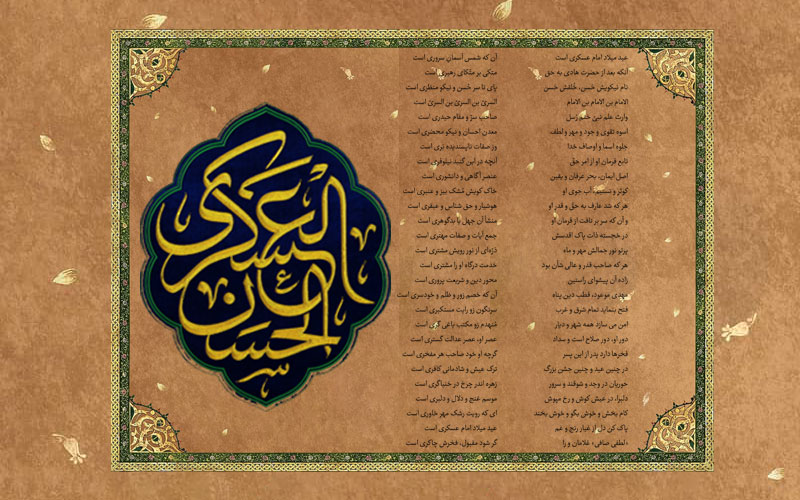 العسکری
الحسن
ع
عید میلاد امام عسکری است آن که شمس آسمان سروری است
آنکه بعد از حضرت هادی به حق متکی بر متکای رهبری است
نام نیکویش حَسن، خُلقش حَسن پای تا سر حُسن و نیکو منظری است
الامام بن الامام بن الامام السریّ بن السریّ بن السریّ است
وارث علم نبیّ ختم رُسل صاحب سرّ و مقام حیدری است
اسوه تقوی و جود و مهر و لطف معدن احسان و نیکو محضری است
جلوه اسما و اوصاف خدا وز صفات ناپسندیده بَری است
تابع فرمان او از امر حق آنچه در این گنبد نیلوفری است
اصل ایمان، بحر عرفان و یقین عنصر آگاهی و دانشوری است
کوثر و تسنیم، آب جوی او خاک کویش مُشک بیز و عنبری است
هر که شد عارف به حقّ و قدر او هوشیار و حق شناس و عبقری است
و آن که سر بر تافت از فرمان او منشأ آن جهل یا بدگوهری است
در خجسته ذات پاک اقدسش جمع آیات و صفات مهتری است
پرتو نور جمالش مهر و ماه ذرّه‌ای از نور رویش مشتری است
هر که صاحب قدر و عالی شأن بود خدمت درگاه او را مشتری است
زاده آن پیشوای راستین محور دین و شریعت پروری است
مهدی موعود، قطب دین پناه آن که خصم زور و ظلم و خودسری است
فتح بنماید تمام شرق و غرب سرنگون زو رایت مستکبری است
امن می سازد همه شهر و دیار مُنهدم زو مکتب یاغی گری است
دور او، دور صلاح است و سداد عصر او، عصر عدالت گستری است
فخرها دارد پدر از این پسر گرچه او خود صاحب هر مفخری است
در چنین عید و چنین جشن بزرگ ترک عیش و شادمانی کافری است
حوریان در وجد و شوقند و سرور زهره اندر چرخ در خنیاگری است
دلبرا، در عیش کوش و رخ مپوش موسم غنج و دلال و دلبری است
کام بخش و خوش بگو و خوش بخند ای که رویت رشک مهر خاوری است
پاک کن دل از غبار رنج و غم عید میلاد امام عسکری است
«لطفی صافی» غلامان و را گر شود مقبول، فخرش چاکری است